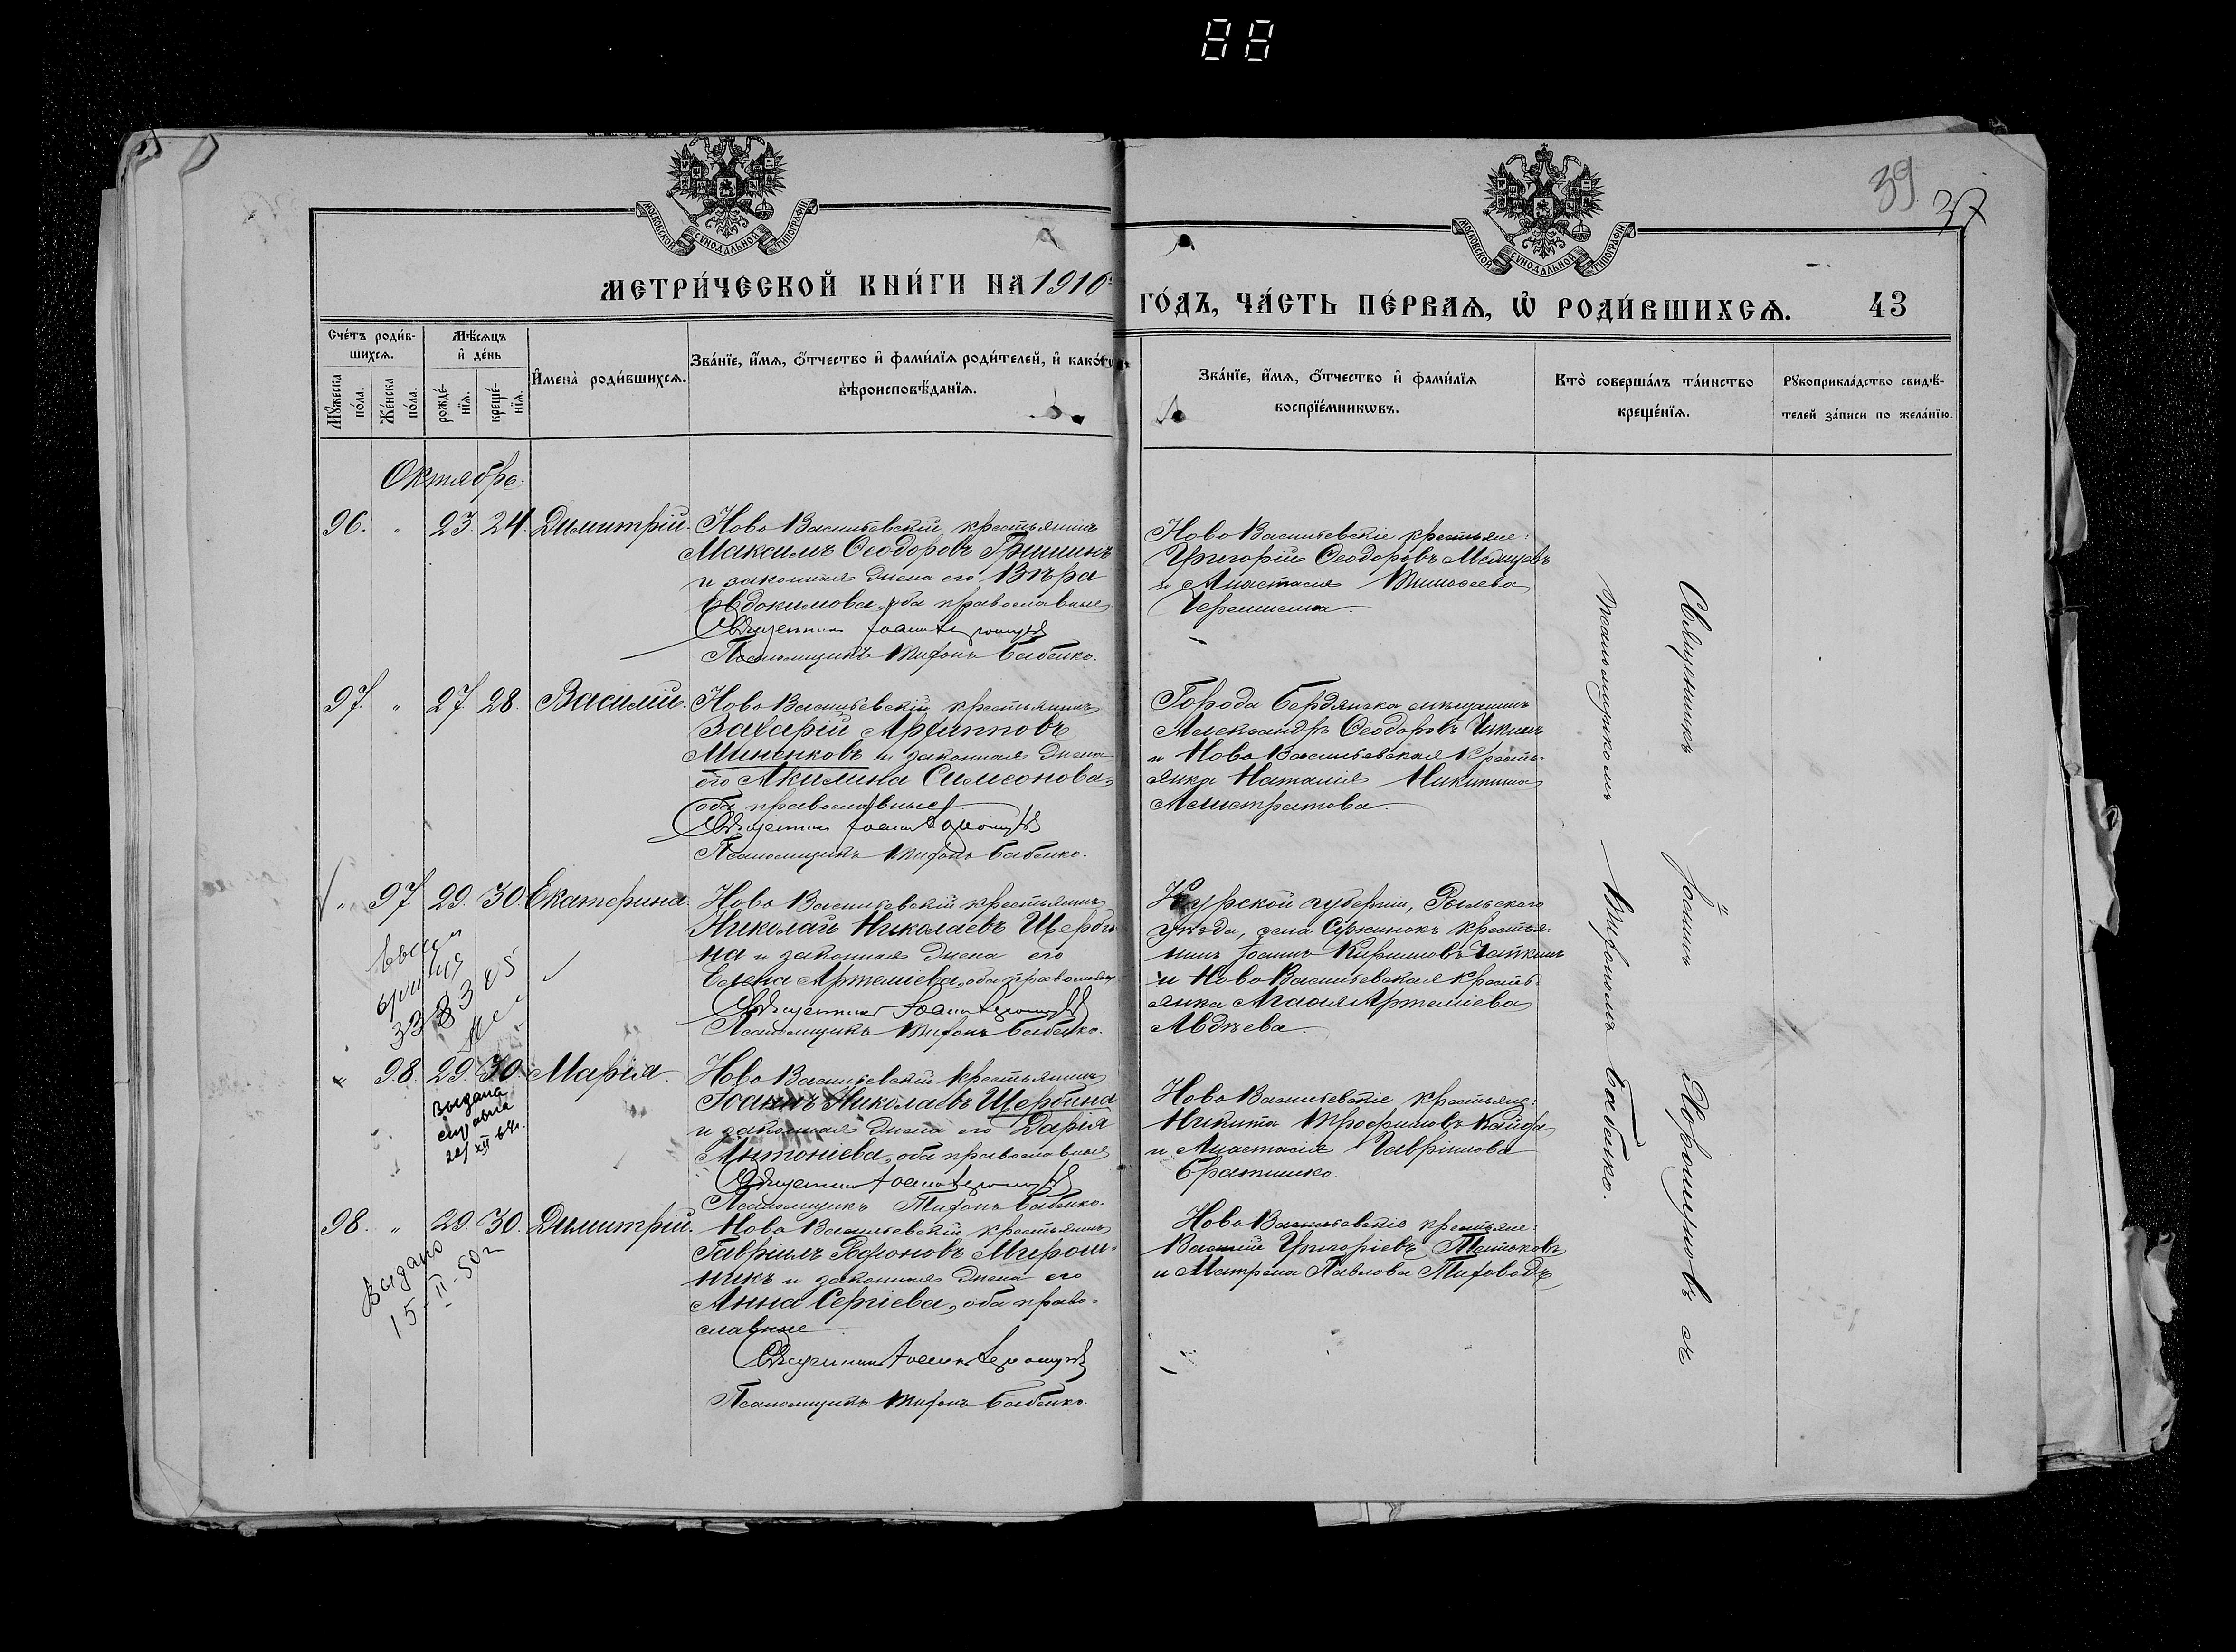 88
МОСКОВСКОЙ СУНОДАЛЬНОЙ ТИПОГРАФІИ
МОСКОВСКОЙ СУНОДАЛЬНОЙ ТИПОГРАФІИ
39
37
МЕТРИ́ЧЕСКОЙ КНИ́ГИ НА 1910
ГО́ДЪ, ЧА́СТЬ ПЕ́РВАѦ, Ѽ РОДИ́ВШИХСѦ. 43
Сче́тъ роди́в-
шихсѧ.
Мꙋжеска по́ла.
Же́нска по́ла.
Мѣ́сѧцъ
и҆ де́нь
рожде́-
нїѧ.
креще́-
нїѧ.
И҆мена̀ роди́вшихсѧ.
Зва́нїе, и҆́мѧ, ѻ҆́тчество и҆ фами́лїѧ роди́телей, и҆ како́гѡ
вѣроисповѣ́данїѧ.
Зва́нїе, и҆́мѧ, ѻ҆́тчество и҆ фами́лїѧ
воспрїе́мникѡвъ.
Кто̀ соверша́лъ та́инство
креще́нїѧ.
Рꙋкоприкла́дство свидѣ́-
телей за́писи по жела́нїю.
Октябрь.
96. " 23. 24. Димитрій.
Ново Васильевскій крестьянинъ
Максимъ Ѳеодоровъ Гришинъ
и законная жена его Вѣра
Евдокимова, оба православные
Священникъ Іоаннъ Хорошуновъ
Псаломщикъ Тифонъ Бабенко.
Ново Васильевскіе крестьяне:
Григорій Ѳеодоровъ
и Анастасія Тимоѳеева
97. " 27. 28. Василій.
Ново Васильевскій крестьянинъ
Захарій Архипповъ
Миненковъ и законная жена
его Акилина Симеонова,
оба православные
Священникъ Іоаннъ Хорошуновъ
Псаломщикъ Тифонъ Бабенко.
Города Бердянска мѣщанинъ
Александръ Ѳеодоровъ
и Ново Васильевская кресть-
янка Наталія Никитина
Мелистратова.
" 97 29. 30. Екатерина.
Ново Васильевскій крестьянинъ
Николай Николаевъ Щерби-
на и законная жена его
Елена Артеміева, оба православные
Священникъ Іоаннъ Хорошуновъ
Псаломщикъ Тифонъ Бабенко.
Курской губерніи, Рыльскаго
уѣзда, села крестья-
нинъ Іоаннъ Кирилловъ
и Ново Васильевская кресть-
янка Агаѳія Артеміева
Авдѣева.
" 98. 29. 30. Марія.
Выдана
справка
22/XII 64г.
Ново Васильевскій крестьянинъ
Іоаннъ Николаевъ Щербина
и законная жена его Дарія
Антоніева, оба православные
Священникъ Іоаннъ Хорошуновъ
Псаломщикъ Тифонъ Бабенко.
Ново Васильевскіе крестьяне:
Никита Трофимовъ Кайда
и Анастасія Гавріилова
Братишко.
98. " 29. 30. Димитрій.
Выдано
15-II-50 г
Ново Васильевскій крестьянинъ
Гавріилъ Мирош-
никъ и законная жена его
Анна Сергіева, оба право-
славные
Священникъ Іоаннъ Хорошуновъ
Псаломщикъ Тифонъ Бабенко.
Ново Васильевскіе крестьяне:
Василій Григоріевъ
и Матрена Павлова
Священникъ Іоаннъ Хорошуновъ съ
псаломщикомъ Тифономъ Бабенко.